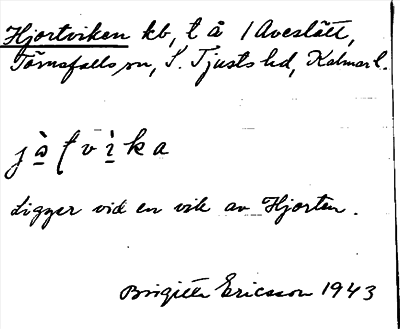 Hjortviken kb, t å 1 Aveslätt,
Törnsfalls sn, S. Tjusts hd, Kalmar l.
jà̱ʃvì̱ka
Ligger vid en vik av Hjorten.
Birgitta Ericsson 1943